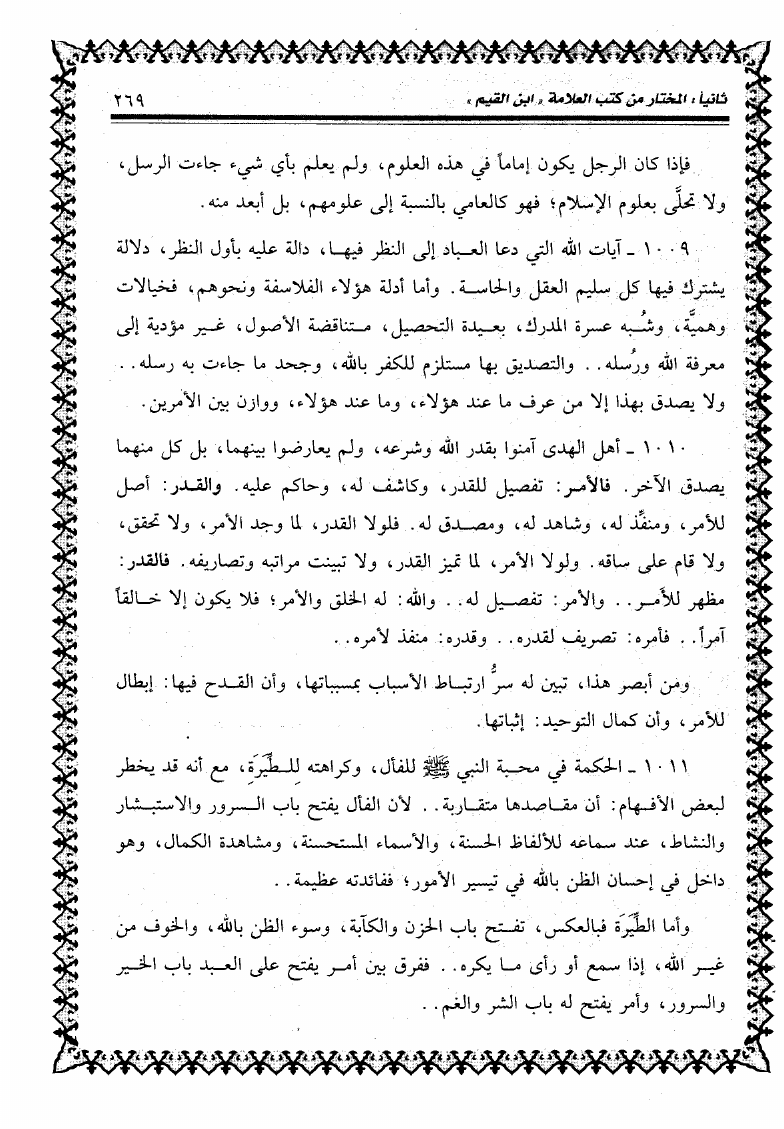 ثانياً : المختار من كتب العلامة « ابن القيم » ٢٦٩
فإذا كان الرجل يكون إماماً في هذه العلوم، ولم يعلم بأي شيء جاءت الرسل،
ولا تحلَّى بعلوم الإسلام؛ فهو كالعامي بالنسبة إلى علومهم، بل أبعد منه.
١٠٠٩ ـ آيات الله التي دعا العباد إلى النظر فيها، دالة عليه بأول النظر، دلالة
يشترك فيها كل سليم العقل والحاسة. وأما أدلة هؤلاء الفلاسفة ونحوهم، فخيالات
وهميَّة، وشُبه عسرة المدرك، بعيدة التحصيل، متناقضة الأصول، غير مؤدية إلى
معرفة الله ورُسله.. والتصديق بها مستلزم للكفر بالله، وجحد ما جاءت به رسله..
ولا يصدق بهذا إلا من عرف ما عند هؤلاء، وما عند هؤلاء، ووازن بين الأمرين.
١٠١٠ ـ أهل الهدى آمنوا بقدر الله وشرعه، ولم يعارضوا بينهما، بل كل منهما
يصدق الآخر. فالأمر: تفصيل للقدر، وكاشف له، وحاكم عليه. والقدر: أصل
للأمر، ومنفِّذ له، وشاهد له، ومصدق له. فلولا القدر، لما وجد الأمر، ولا تحقق،
ولا قام على ساقه. ولولا الأمر، لما تميز القدر، ولا تبينت مراتبه وتصاريفه. فالقدر:
مظهر للأمر.. والأمر: تفصيل له.. والله: له الخلق والأمر؛ فلا يكون إلا خالقاً
آمراً.. فأمره: تصريف لقدره.. وقدره: منفذ لأمره..
ومن أبصر هذا، تبين له سرُّ ارتباط الأسباب بمسبباتها، وأن القدح فيها: إبطال
للأمر، وأن كمال التوحيد: إثباتها.
١٠١١ ـ الحكمة في محبة النبي ﷺ للفأل، وكراهته للطِّيَرَةِ، مع أنه قد يخطر
لبعض الأفهام: أن مقاصدها متقاربة.. لأن الفأل يفتح باب السرور والاستبشار
والنشاط، عند سماعه للألفاظ الحسنة، والأسماء المستحسنة، ومشاهدة الكمال، وهو
داخل في إحسان الظن بالله في تيسير الأمور؛ ففائدته عظيمة..
وأما الطِّيَرَة فبالعكس، تفتح باب الحزن والكآبة، وسوء الظن بالله، والخوف من
غير الله، إذا سمع أو رأى ما يكره.. ففرق بين أمر يفتح على العبد باب الخير
والسرور، وأمر يفتح له باب الشر والغم..